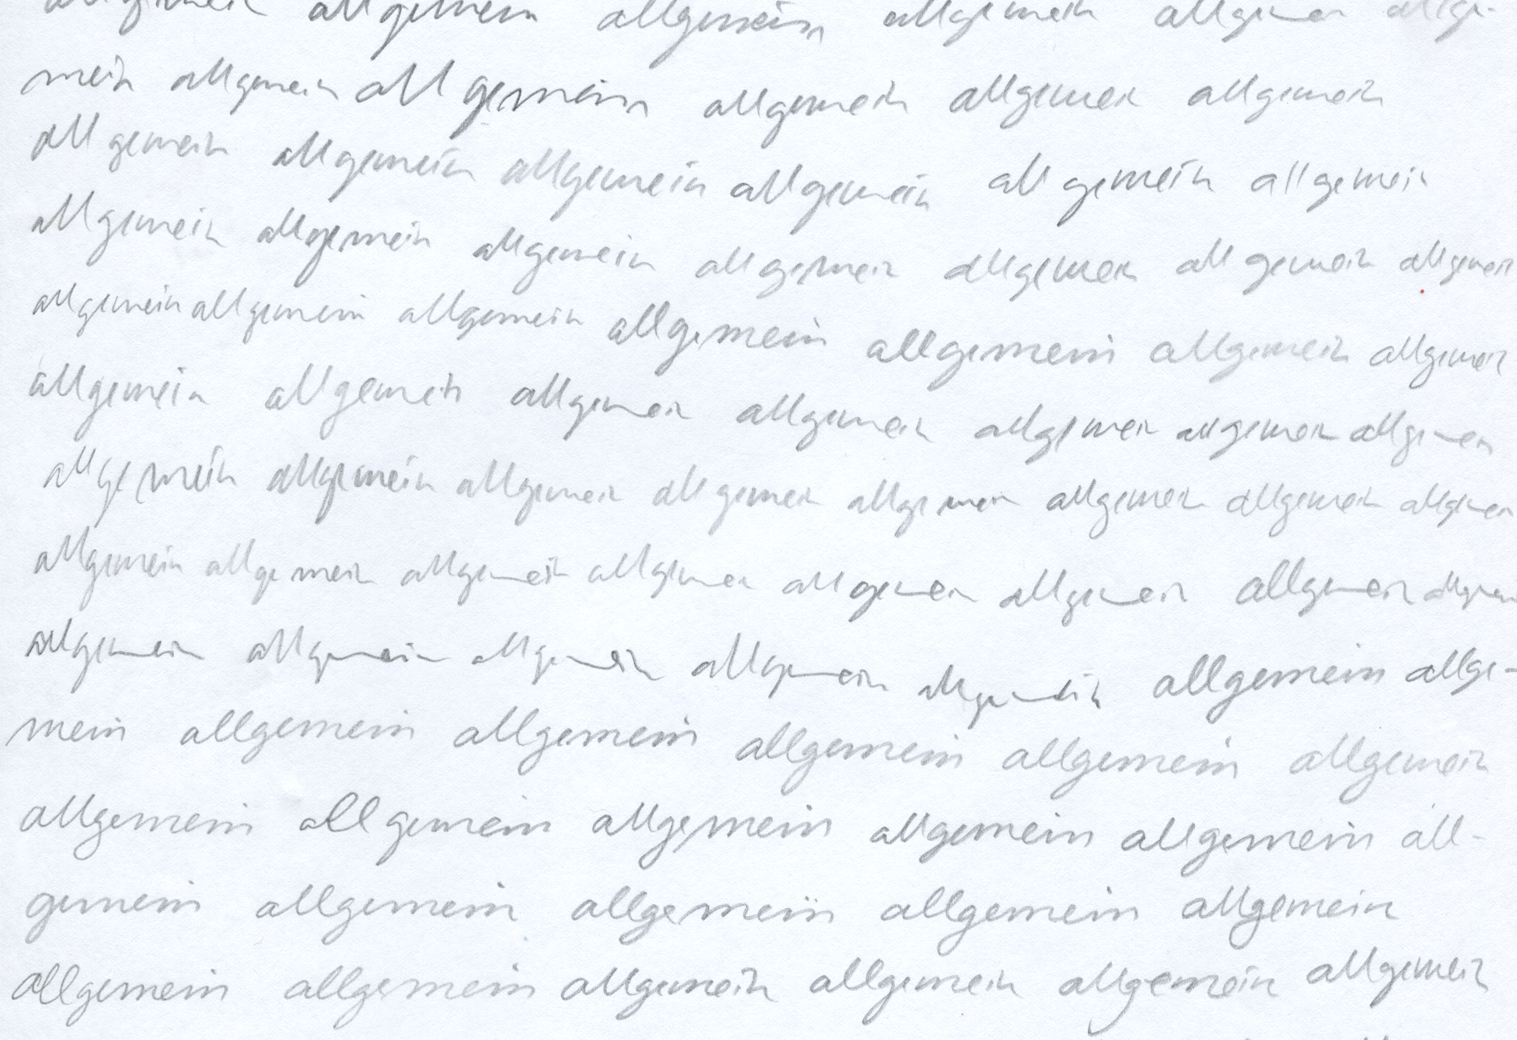 allgemein allgemein allgemein allgemein allgemein allge-
mein allgemein allgemein allgemein allgemein allgemein
allgemein allgemein allgemein allgemein allgemein allgemein
allgemein allgemein allgemein allgemein allgemein allgemein allgemein
allgemein allgemein allgemein allgemein allgemein allgemein allgemein
allgemein allgemein allgemein allgemein allgemein allgemein allgemein
allgemein allgemein allgemein allgemein allgemein allgemein allgemein allgemein
allgemein allgemein allgemein allgemein allgemein allgemein allgemein allgemein
allgemein allgemein allgemein allgemein allgemein allgemein allge-
mein allgemein allgemein allgemein allgemein allgemein
allgemein allgemein allgemein allgemein allgemein all-
gemein allgemein allgemein allgemein allgemein
allgemein allgemein allgemein allgemein allgemein allgemein